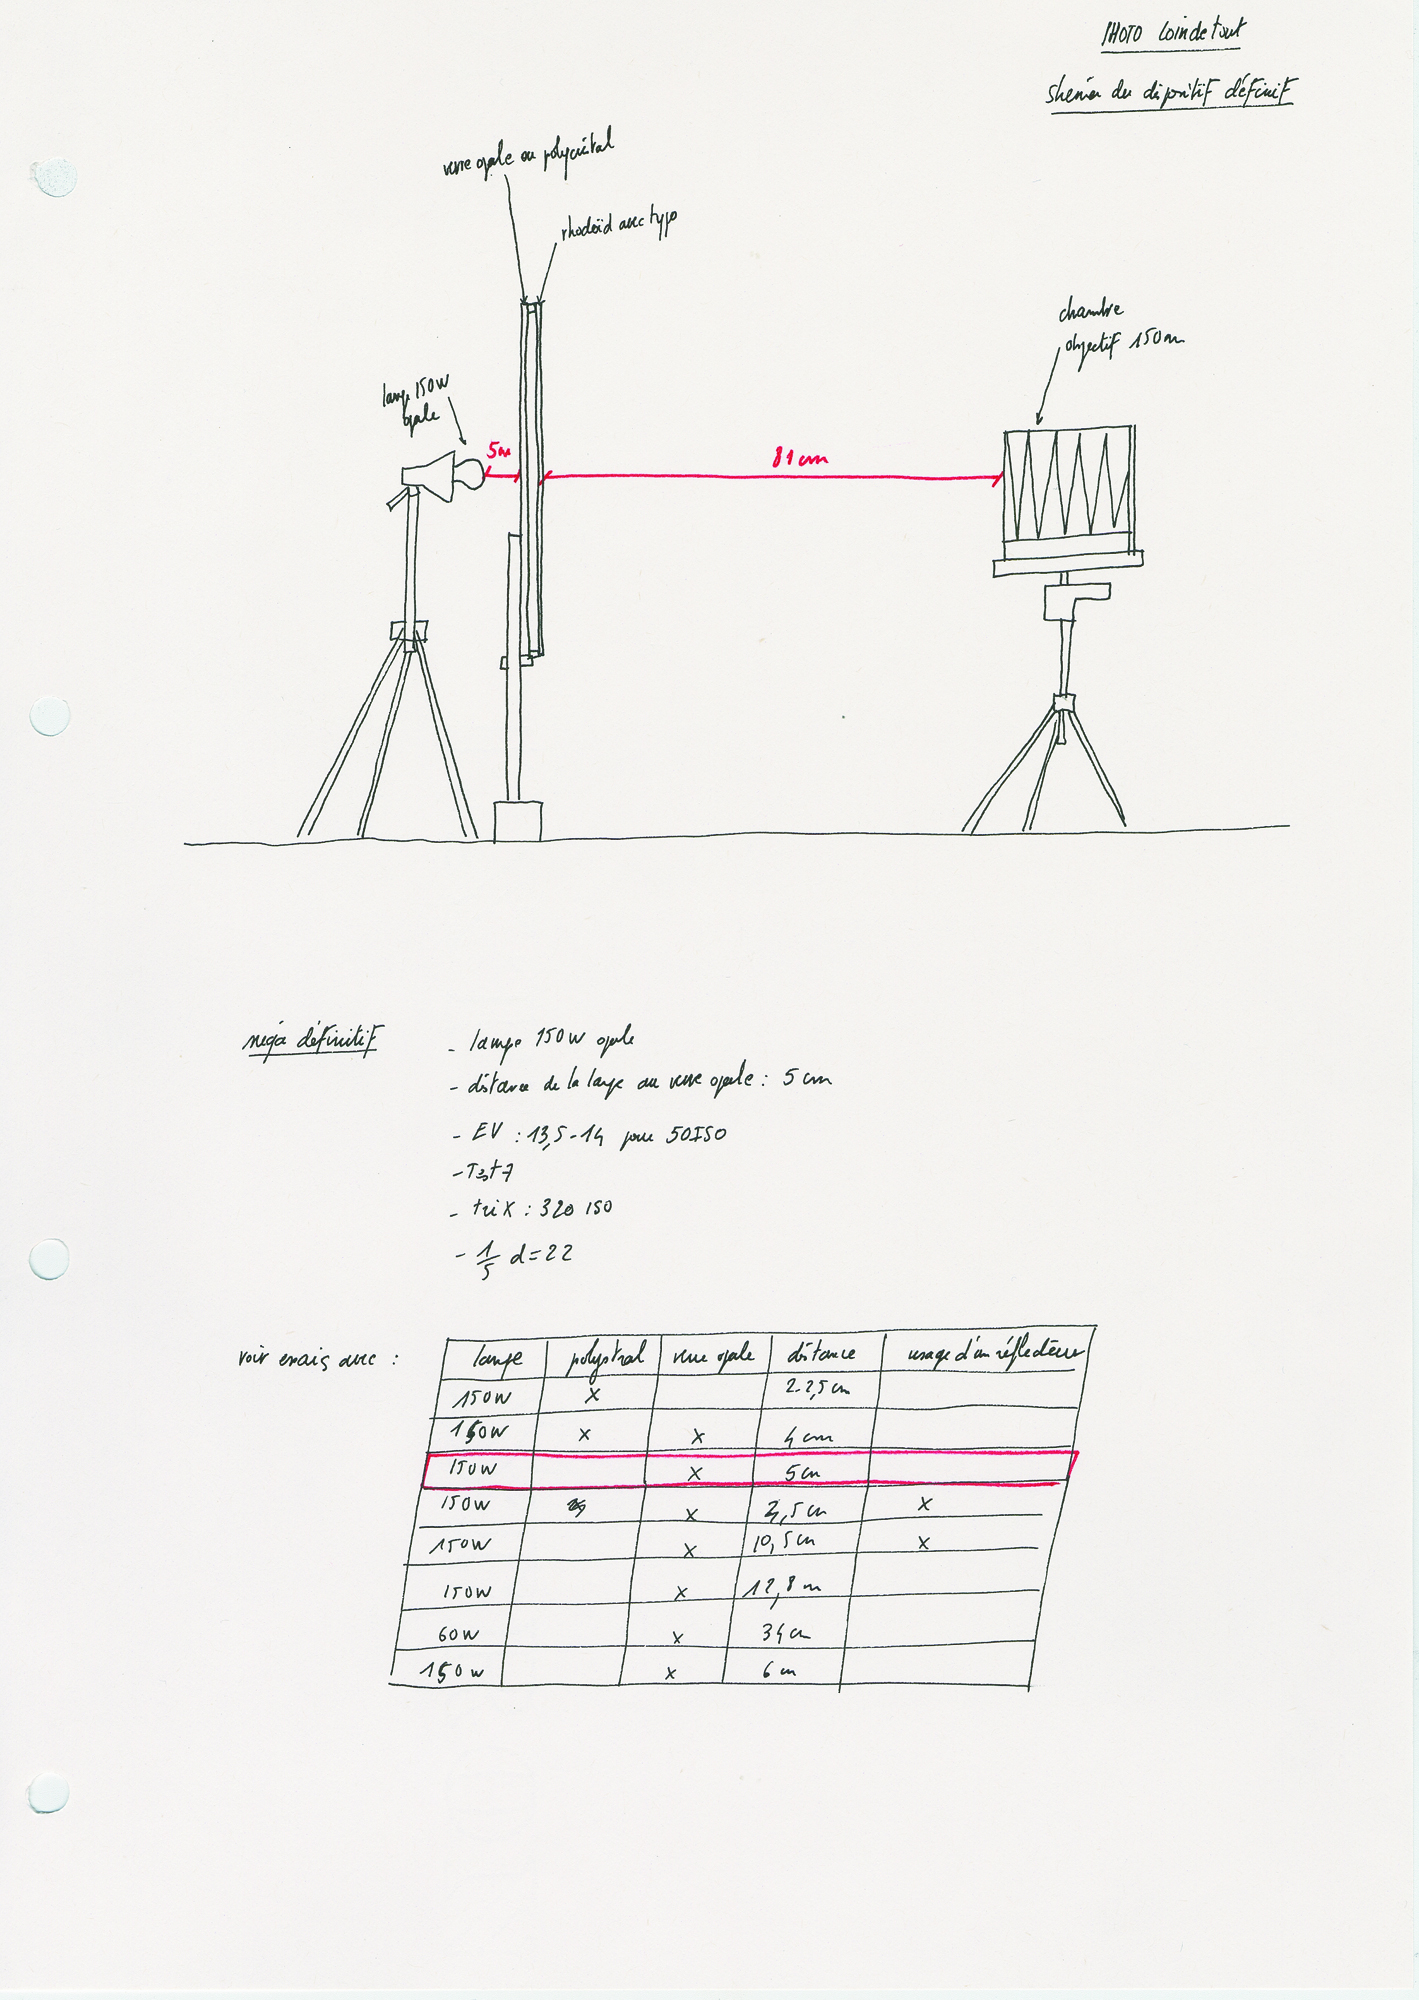 PHOTO Loindetout
shéma du dispositif définitif
verre opale ou polycristal
rhodoïd avec typo
chambre
objectif 150m
lampe 150W
opale
5cm
81cm
néga définitif
- lampe 150W opale
- distance de la lampe au verre opale : 5 cm
- EV : 13,5-14 pour 50ISO
- Test 7
- triX : 320 ISO
- 1/5 d=22
voir essais avec :
lampe polystral verre opale distance usage d'un réflecteur
150W x 2-2,5cm
150W x x 4cm
150W x 5cm
150W x ,5cm x
150W x 10,5cm x
150W x 12,8m
60W x 34cm
150W x 6cm